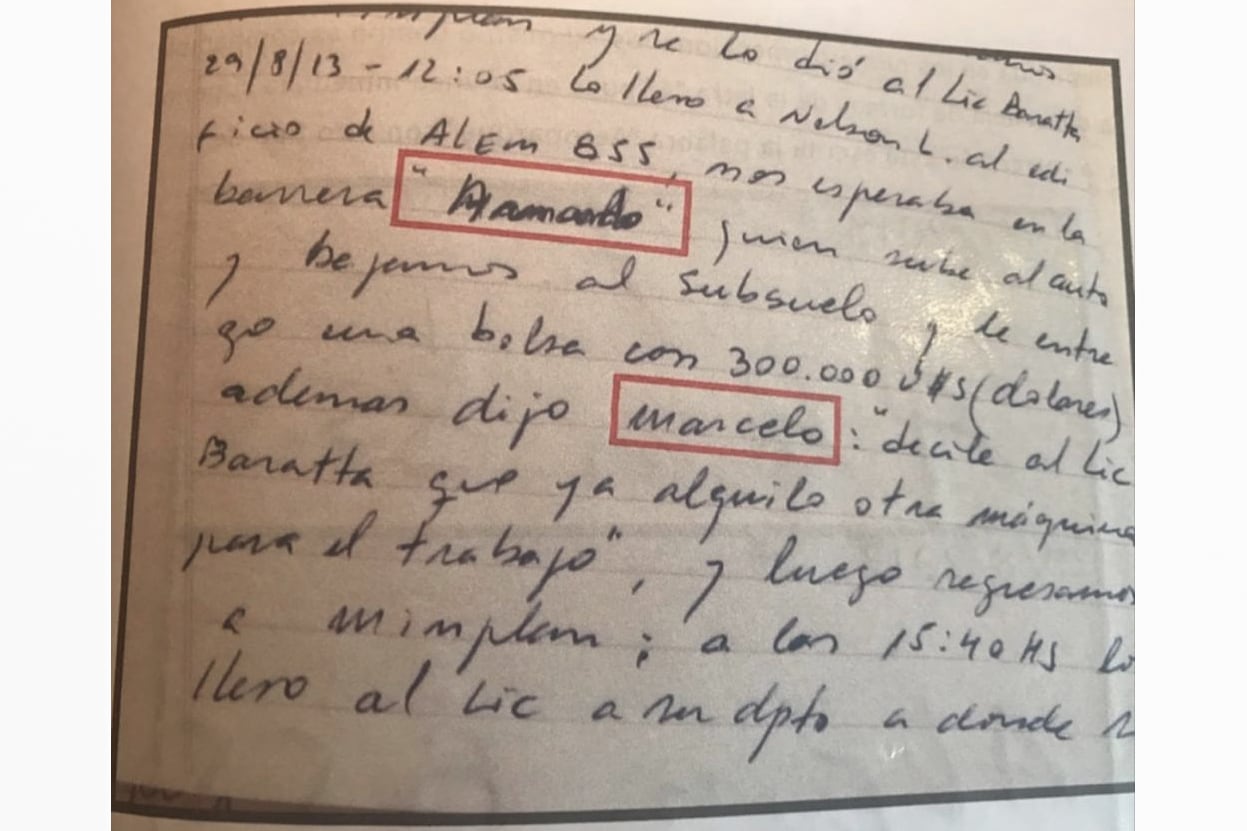 y se lo dió al Lic Baratta
29/8/13 - 12:05 Lo llevo a Nelson L. al edi
ficio de ALEM 855, nos esperaba en la
barrera "Armando" quien sube al auto
y bajamos al subsuelo y le entre
go una bolsa con 300.000 U$S (dolares)
ademas dijo Marcelo: "decile al Lic
Baratta que ya alquilo otra máquina
para el trabajo", y luego regresamos
a minplan; a las 15:40 HS lo
llevo al Lic a su dpto a donde